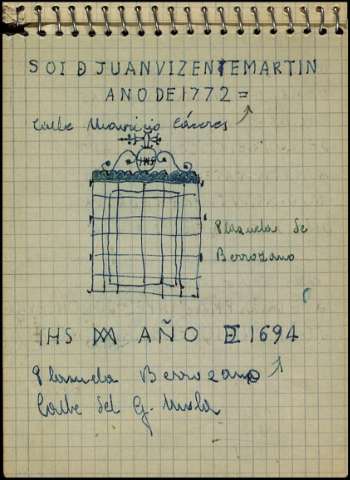 SOI D JUAN VIZENTE MARTIN
ANO DE 1772 =
Calle Mauricio Cáceres
IHS
Plazuela de
Berrozano
IHS MA AÑO DE 1694
Plazuela Berrozano
Calle del G. Mola